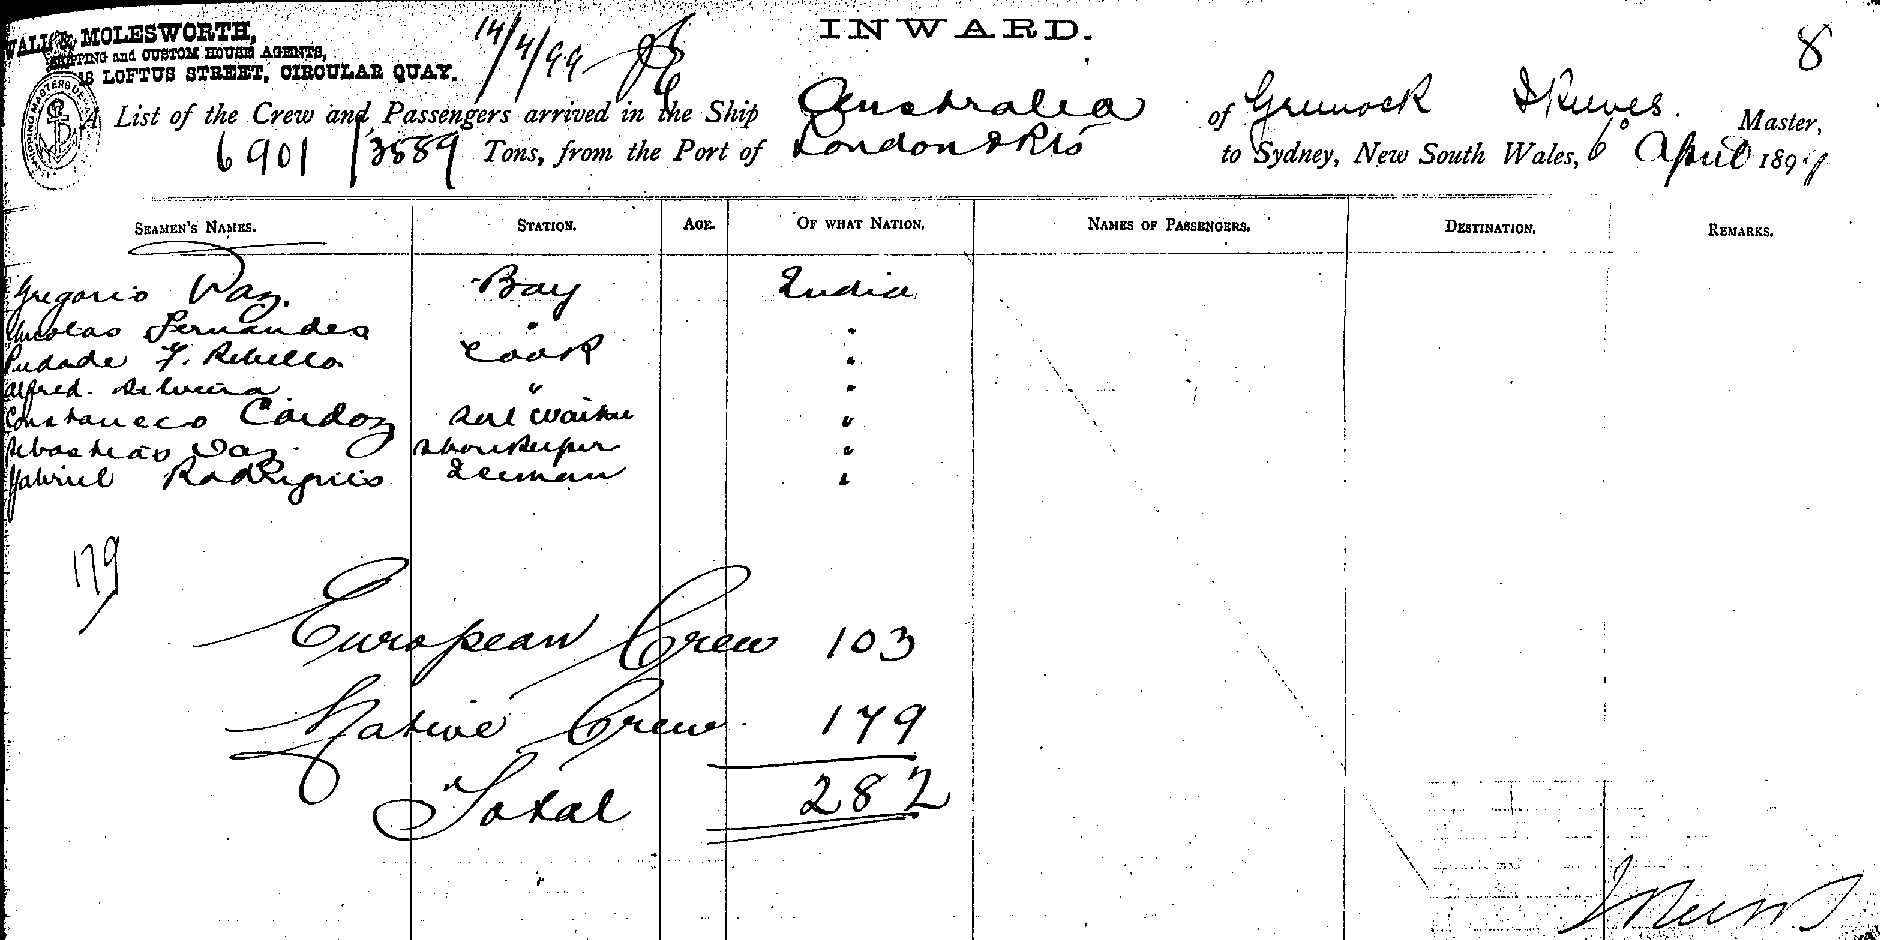 INWARD.
WALL & MOLESWORTH,
SHIPPING and CUSTOM HOUSE AGENTS,
16 LOFTUS STREET, CIRCULAR QUAY.
14/4/99
8
A List of the Crew and Passengers arrived in the Ship Australia of Greenock Master,
6901/3589 Tons, from the Port of London & Pts to Sydney, New South Wales, 6 April 1899
SEAMEN'S NAMES. STATION. AGE. OF WHAT NATION. NAMES OF PASSENGERS. DESTINATION. REMARKS.
Gregorio Vaz. Boy India
Fernandes " "
Piedade F. Rebello Cook "
Alfred. Silveira " "
Constancio Cardoz waiter "
Sebastiao Vaz. Storekeeper "
Gabriel Rodrigues Iceman "
179
European Crew 103
Native Crew 179
Total 282